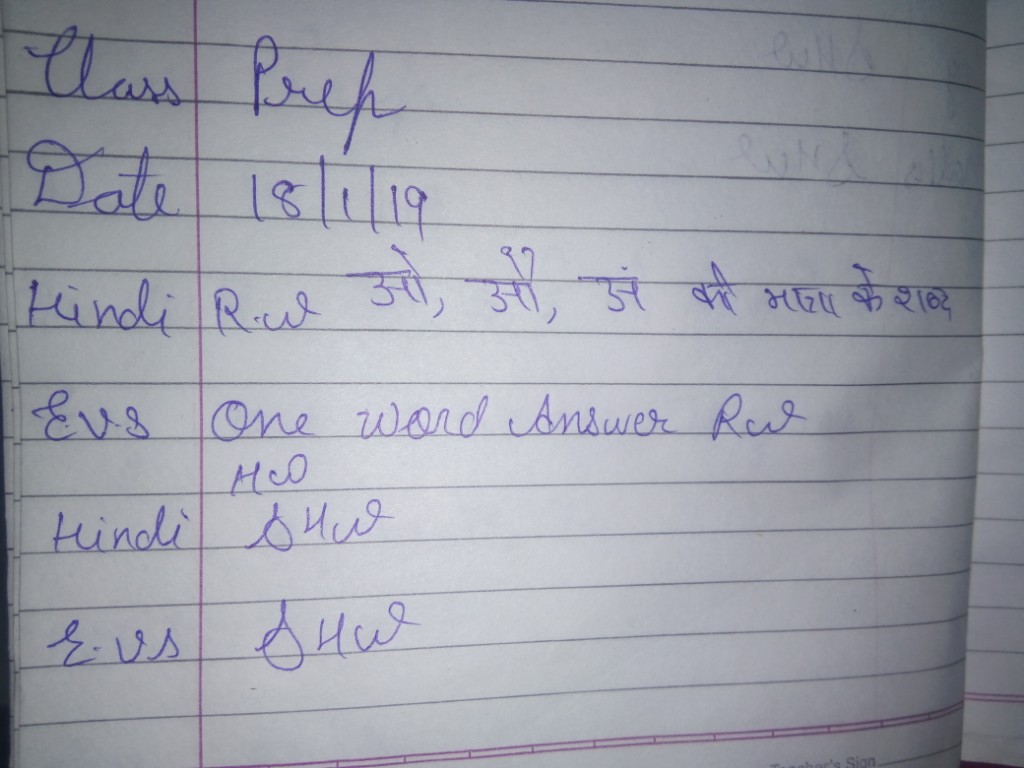 Class Prep
Date 18/1/19
Hindi R.w ओ, औ, अं की मात्रा के शब्द
E.V.S One word Answer Rw
HW
Hindi SHW
E.V.S SHW
Teacher's Sign